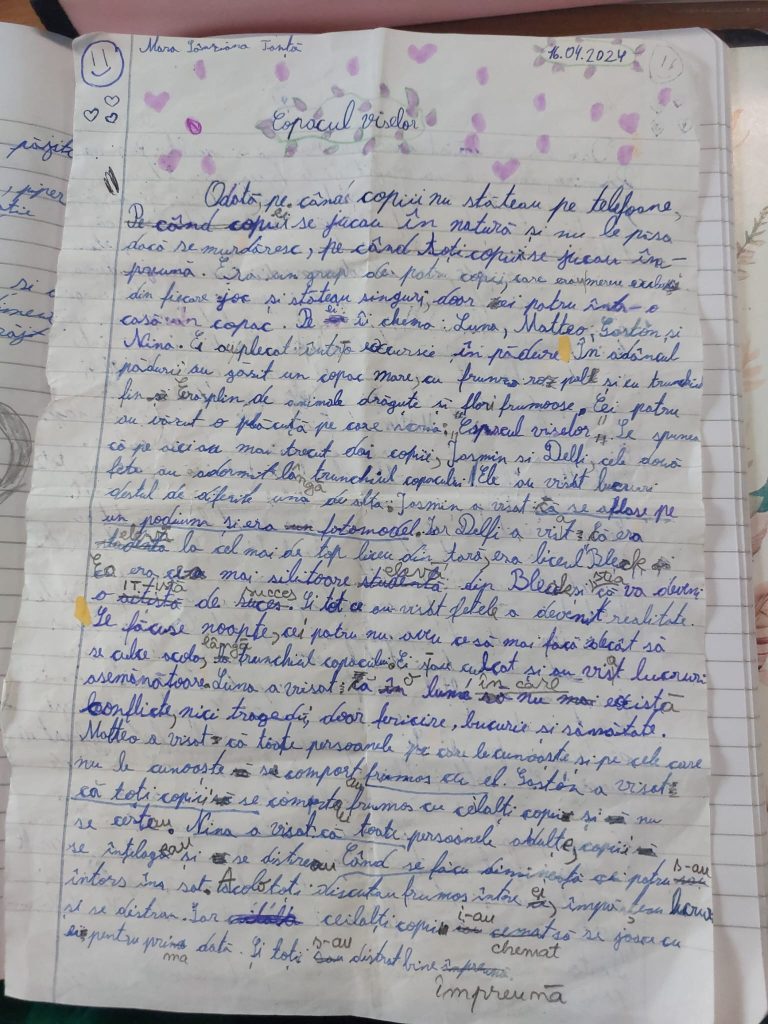 Mara Sânziana Tanță
16.04.2024
Copacul viselor
Odată, pe când copiii nu stăteau pe telefoane,
ei se jucau în natură și nu le păsa
dacă se murdăresc, pe când toți copiii se jucau îm-
preună. Era un grup de patru copii, care erau mereu excluși
din fiecare joc și stăteau singuri, doar ei patru într-o
casă în copac. Pe ei îi chema: Luna, Matteo, Gaston și
Nina. Ei au plecat într-o excursie în pădure. În adâncul
pădurii au gasit un copac mare, cu frunze roz pal și cu trunchiul
fin. Era plin de animale drăguțe și flori frumoase. Cei patru
au văzut o plăcuță pe care scria: "Copacul viselor". Se spunea
că pe aici au mai trecut doi copii, Jasmin si Delfi, cele două
fete au adormit lângă trunchiul copacului. Ele au visat lucruri
destul de diferite una de alta. Jasmin a visat că se aflase pe
un podium și era fotomodel. Iar Delfi a visat că era
elevă la cel mai de top liceu din țară, era liceul Bleek și
Ea era cea mai silitoare elevă din Bleek și că va deveni
o de succes. Și tot ce au visat fetele a devenit realitate.
Se făcuse noapte, cei patru nu aveu ce să mai facă decât să
se culce acolo, lângă trunchiul copacului. Ei s-au culcat si au visat lucruri
asemănătoare. Luna a visat o lume în care nu există
conflicte, nici tragedii, doar fericire, bucurie si sănătate.
Matteo a visat că toate persoanele pe care le cunoaste si pe cele care
nu le cunoaste se comport frumos cu el. Gastón a visat
că toți copiii se comportau frumos cu ceilalți copii și nu
se certau. Nina a visat că toate persoanele adulte, copiii
se înțelegeau și se distreau. Când se făcu dimineață cei patru s-au
întors în sat. Acolo toți discutau frumos între ei, împărțeau lucruri
și se distrau. Iar ceilalți copii i-au chemat să se joace cu
ei pentru prima dată. Și toți s-au distrat bine
împreună